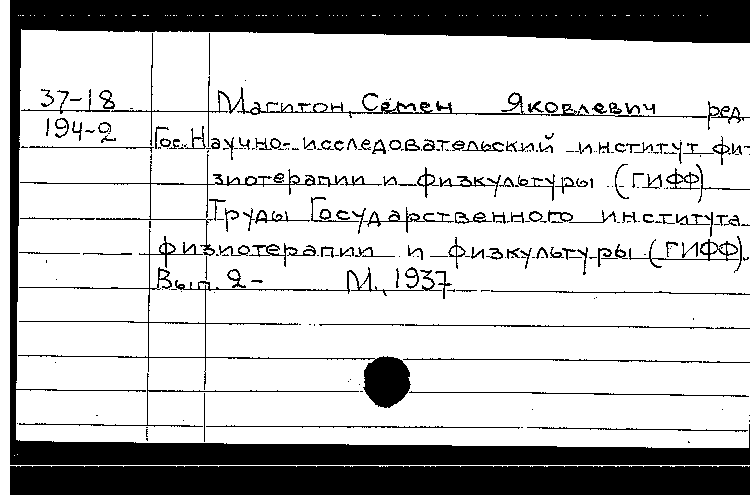 37-18 Магитон, Семен Яковлевич ред.
194-2 Гос. Научно-исследовательский институт фи-
зиотерапии и физкультуры (ГИФФ)
Труды Государственного института
физиотерапии и физкультуры (ГИФФ).
Вып. 2- М., 1937